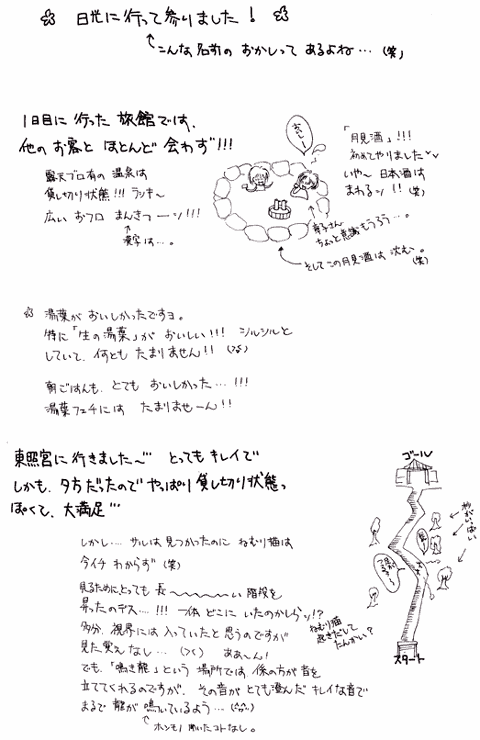 日光に行って参りました!
こんな名前の おかしって あるよね…(笑)
1日目に行った旅館では、
他のお客と ほとんど会わず!!!
露天ブロ有の 温泉は
貸し切り状態!!! ラッキ〜
広いおフロ まんきつーッ!!!
漢字は…。
「月見酒」!!!
初めてやりました♡♡
いや〜 日本酒は
まわるッ!!(笑)
ちょっと意識もうろう…。
そしてこの月見酒は 沈む。
(笑)
湯葉が おいしかったですョ。
特に「生の湯葉」が おいしい!!! ジルジルと
していて、何とも たまりません!!
朝ごはんも、とても おいしかった…!!!
湯葉フェチには たまりませーん!!
東照宮に行きました〜 とっても キレイで
しかも、夕方だったので やっぱり 貸し切り状態っ
ぽくて、大満足
しかし… サルは見つかったのに ねむり猫は
今イチ わからず(笑)
見るためにとっても 長〜い 階段を
昇ったのデス…!!! 一体どこに いたのかしらッ!?
多分、視界には 入っていたと 思うのですが
見た覚えなし… あぁ〜ん!
でも、「鳴き龍」という 場所では、係の方が 音を
立ててくれるのですが、その音が とても澄んだ キレイな音で
まるで 龍が 鳴いているよう…
ホンモノ 聞いたコトなし。
ゴール
ねむり猫
起きだして
たんかい?
スタート